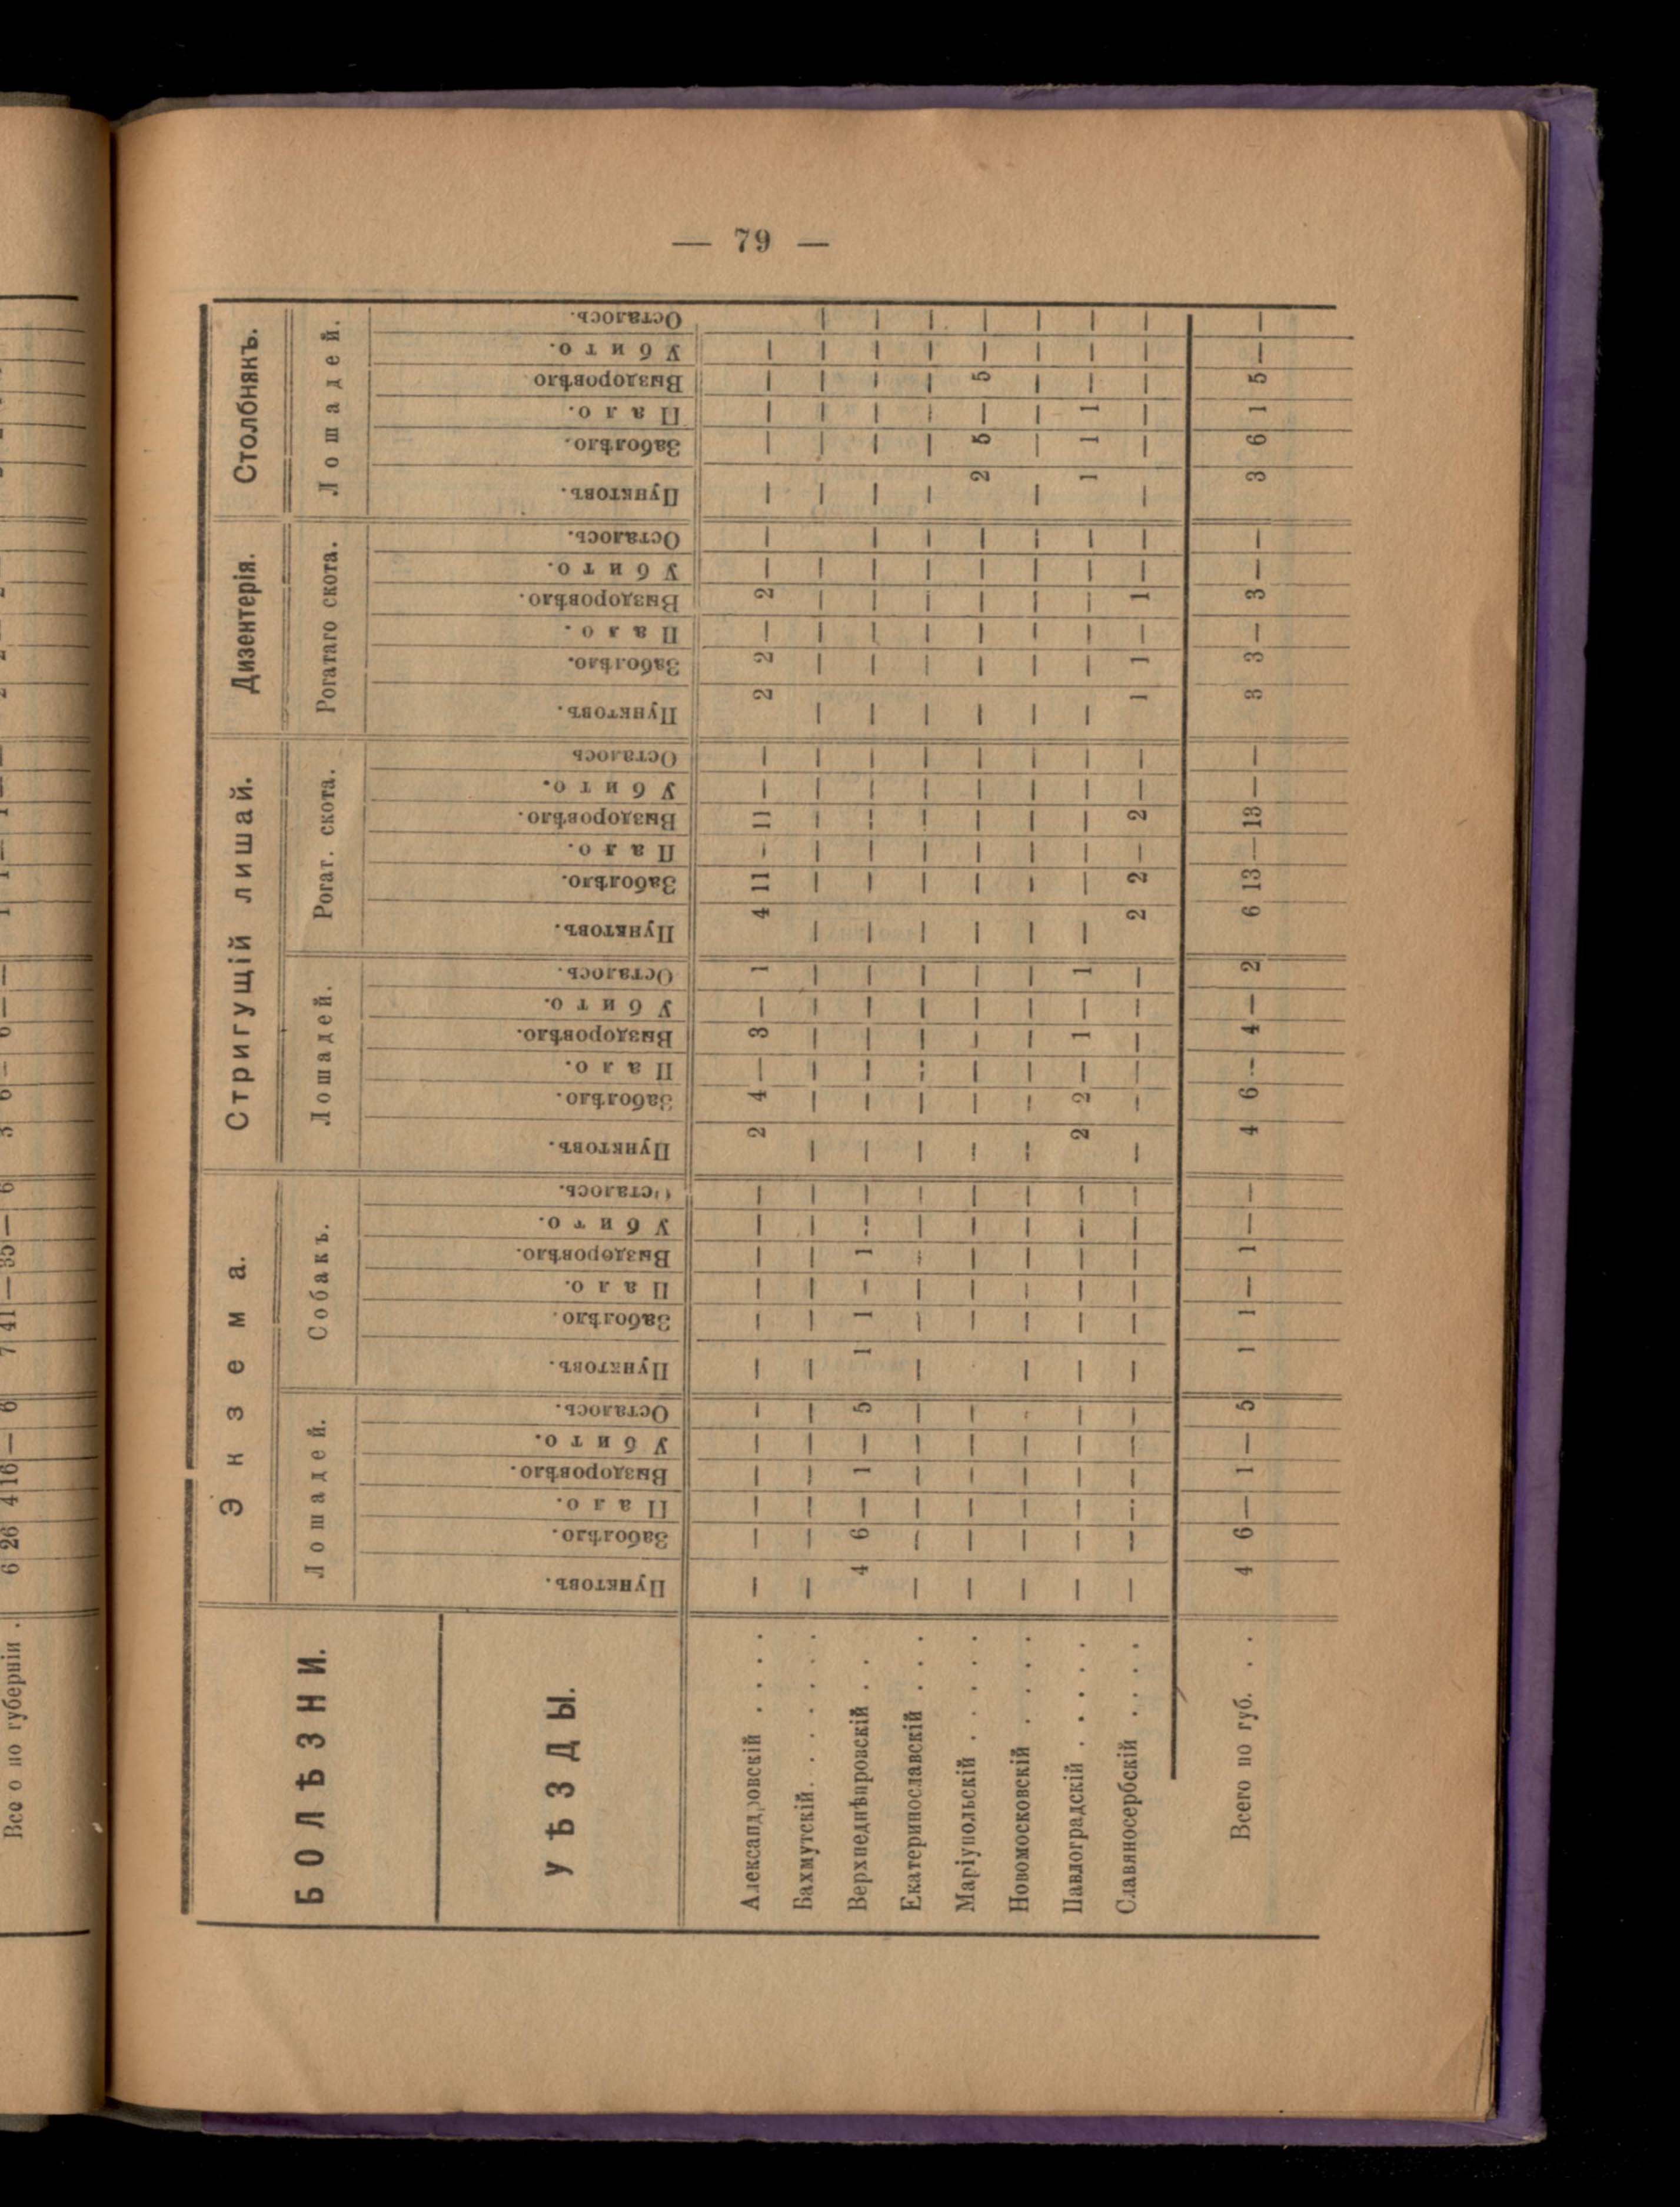 — 79 —
БОЛѢЗНИ. Экзема. Стригущій лишай. Дизентерія. Столбнякъ.
Лошадей. Собакъ. Лошадей. Рогат. скота. Рогатаго скота. Лошадей.
УѢЗДЫ. Пунктовъ. Заболѣло. Пало. Выздоровѣло. Убито. Осталось. Пунктовъ. Заболѣло. Пало. Выздоровѣло. Убито. Осталось. Пунктовъ. Заболѣло. Пало. Выздоровѣло. Убито. Осталось. Пунктовъ. Заболѣло. Пало. Выздоровѣло. Убито. Осталось Пунктовъ. Заболѣло. Пало. Выздоровѣло. Убито. Осталось. Пунктовъ. Заболѣло. Пало. Выздоровѣло Убито. Осталось.
Александровскій . . . . — — — — — — — — — — — — 2 4 — 3 — 1 4 11 - 11 — — 2 2 — 2 — — — — — — —
Бахмутскій. . . . . . — — — — — — — — — — — — — — — — — — — — — — — — — — — — — — — — — — —
Верхнеднѣпровскій . . . 4 6 — 1 — 5 1 1 — 1 — — — — — — — — — — — — — — — — — — — — — — — — — —
Екатеринославскій . . . . — — — — — — — — — — — — — — — — — — — — — — — — — — — — — — — — — — — —
Маріупольскій . . . . . — — — — — — — — — — — — — — — — — — — — — — — — — — — — — 2 5 — 5 — —
Новомосковскій . . . . — — — — — — — — — — — — — — — — — — — — — — — — — — — — — — — — — — — —
Павлоградскій . . . . . — — — — — — — — — — — — 2 2 — 1 — 1 — — — — — — — — — — — — 1 1 1 — — —
Славяносербскій . . . . — — — — — — — — — — — — — — — — — — 2 2 — 2 — — 1 1 — 1 — — — — — — — —
Всего по губ. . . 4 6 — 1 — 5 1 1 — 1 — — 4 6 — 4 — 2 6 13 — 13 — — 3 3 — 3 — — 3 6 1 5 — —
Все о по губерніи .
6 26 4 16 — 6
7 41 — 35 — 6